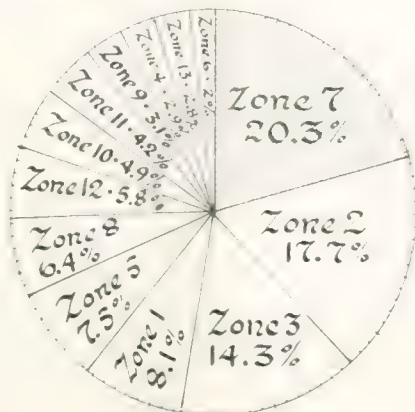 Zone 7
20.3%
Zone 2
17.7%
Zone 3
14.3%
Zone 1
8.1%
Zone 5
7.5%
Zone 8
6.4%
Zone 12 · 5.8%
Zone 10 · 4.9%
Zone 11 · 4.2%
Zone 9 · 3.1%
Zone 4 · 2.9%
Zone 13 · 2.8%
Zone 6 · 2%